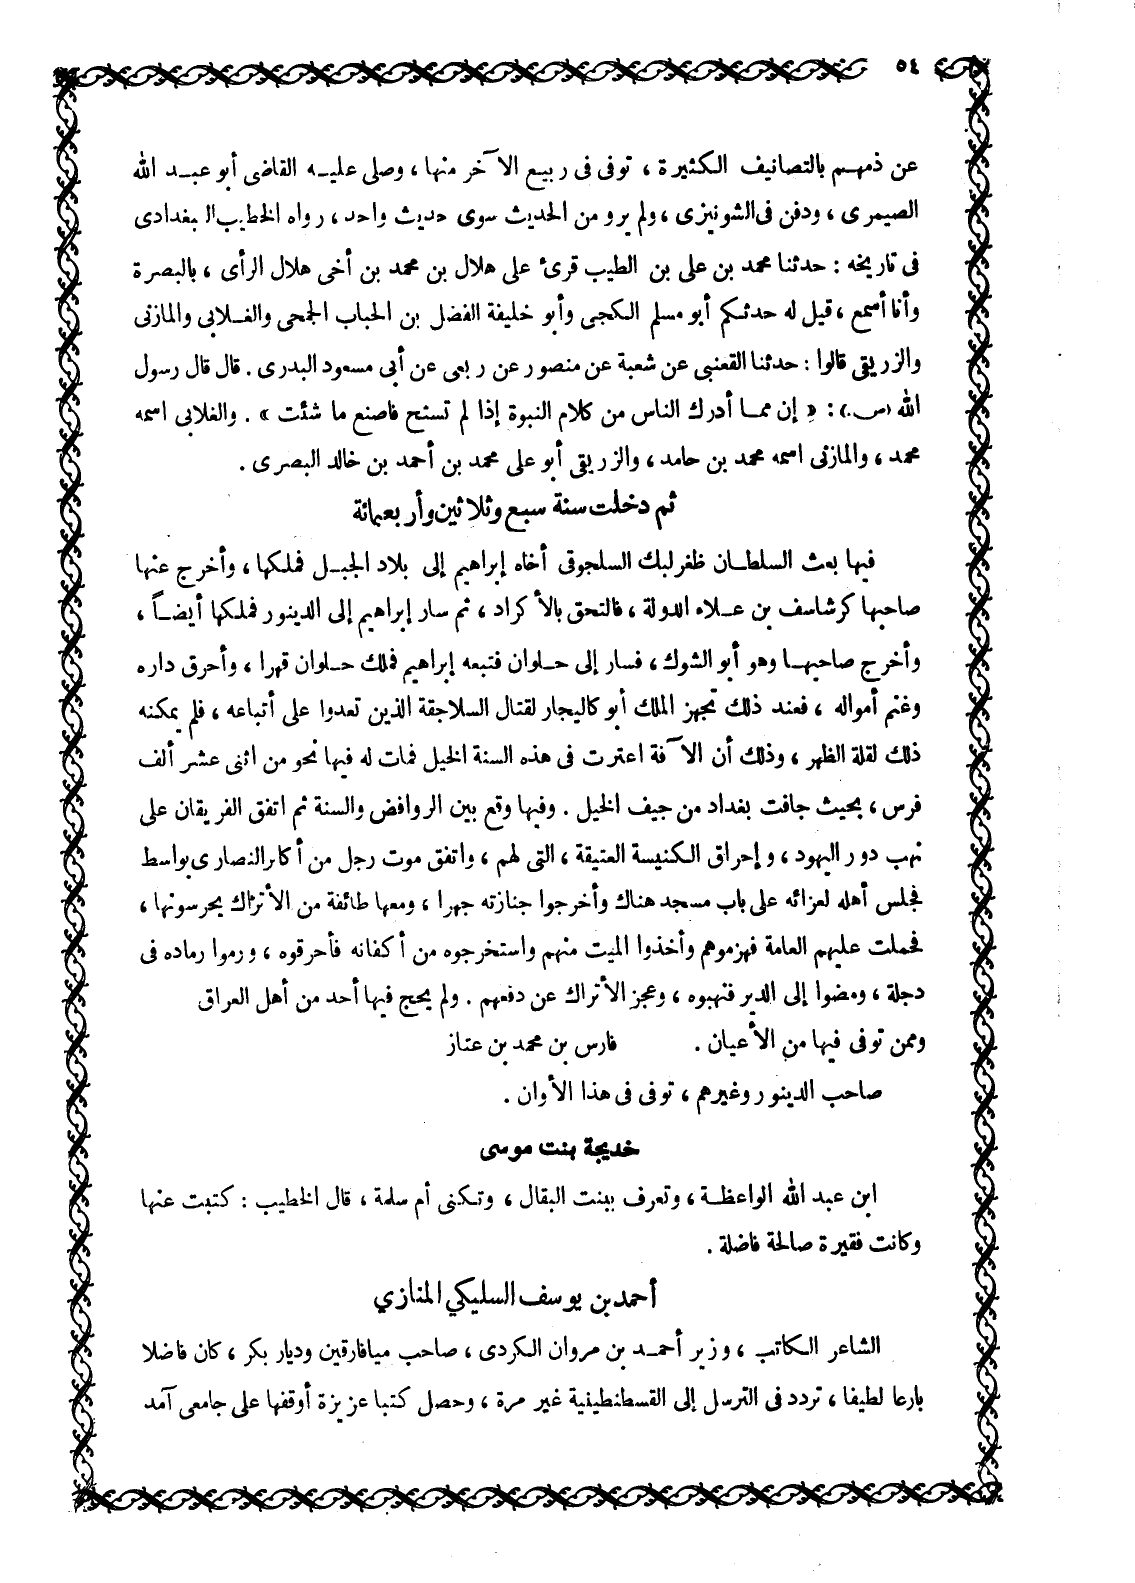 ٥٤
عن ذمهم بالتصانيف الكثيرة ، توفى فى ربيع الآخر منها ، وصلى عليه القاضى أبو عبد الله
الصيمرى ، ودفن فى الشونيزى ، ولم يرو من الحديث سوى حديث واحد ، رواه الخطيب البغدادى
فى تاريخه : حدثنا محمد بن على بن الطيب قرئ على هلال بن محمد بن أخى هلال الرأى ، بالبصرة
وأنا أسمع ، قيل له حدثكم أبو مسلم الكجى وأبو خليفة الفضل بن الحباب الجمحى والغلابى والمازنى
والزريقى قالوا : حدثنا القعنبى عن شعبة عن منصور عن ربعى عن أبى مسعود البدرى . قال قال رسول
الله (ص.) : « إن مما أدرك الناس من كلام النبوة إذا لم تستح فاصنع ما شئت » . والغلابى اسمه
محمد ، والمازنى اسمه محمد بن حامد ، والزريقى أبو على محمد بن أحمد بن خالد البصرى .
ثم دخلت سنة سبع وثلاثين وأربعمائة
فيها بعث السلطان طغرلبك السلجوقى أخاه إبراهيم إلى بلاد الجبل فملكها ، وأخرج عنها
صاحبها كرشاسف بن علاء الدولة ، فالتحق بالأكراد ، ثم سار إبراهيم إلى الدينور فملكها أيضاً ،
وأخرج صاحبها وهو أبو الشوك ، فسار إلى حلوان فتبعه إبراهيم فملك حلوان قهرا ، وأحرق داره
وغنم أمواله ، فعند ذلك تجهز الملك أبو كاليجار لقتال السلاجقة الذين تعدوا على أتباعه ، فلم يمكنه
ذلك لقلة الظهر ، وذلك أن الآفة اعترت فى هذه السنة الخيل فمات له فيها نحو من اثنى عشر ألف
فرس ، بحيث جافت بغداد من جيف الخيل . وفيها وقع بين الروافض والسنة ثم اتفق الفريقان على
نهب دور اليهود ، وإحراق الكنيسة العتيقة ، التى لهم ، واتفق موت رجل من أكابر النصارى بواسط
فجلس أهله لعزائه على باب مسجد هناك وأخرجوا جنازته جهرا ، ومعها طائفة من الأتراك يحرسونها ،
فحملت عليهم العامة فهزموهم وأخذوا الميت منهم واستخرجوه من أكفانه فأحرقوه ، ورموا رماده فى
دجلة ، ومضوا إلى الدير فنهبوه ، وعجز الأتراك عن دفعهم . ولم يحج فيها أحد من أهل العراق
وممن توفى فيها من الأعيان . فارس بن محمد بن عتاز
صاحب الدينور وغيرهم ، توفى فى هذا الأوان .
خديجة بنت موسى
ابن عبد الله الواعظة ، وتعرف ببنت البقال ، وتكنى أم سلمة ، قال الخطيب : كتبت عنها
وكانت فقيرة صالحة فاضلة .
أحمد بن يوسف السليكي المنازي
الشاعر الكاتب ، وزير أحمد بن مروان الكردى ، صاحب ميافارقين وديار بكر ، كان فاضلا
بارعا لطيفا ، تردد فى الترسل إلى القسطنطينية غير مرة ، وحصل كتبا عزيزة أوقفها على جامعى آمد